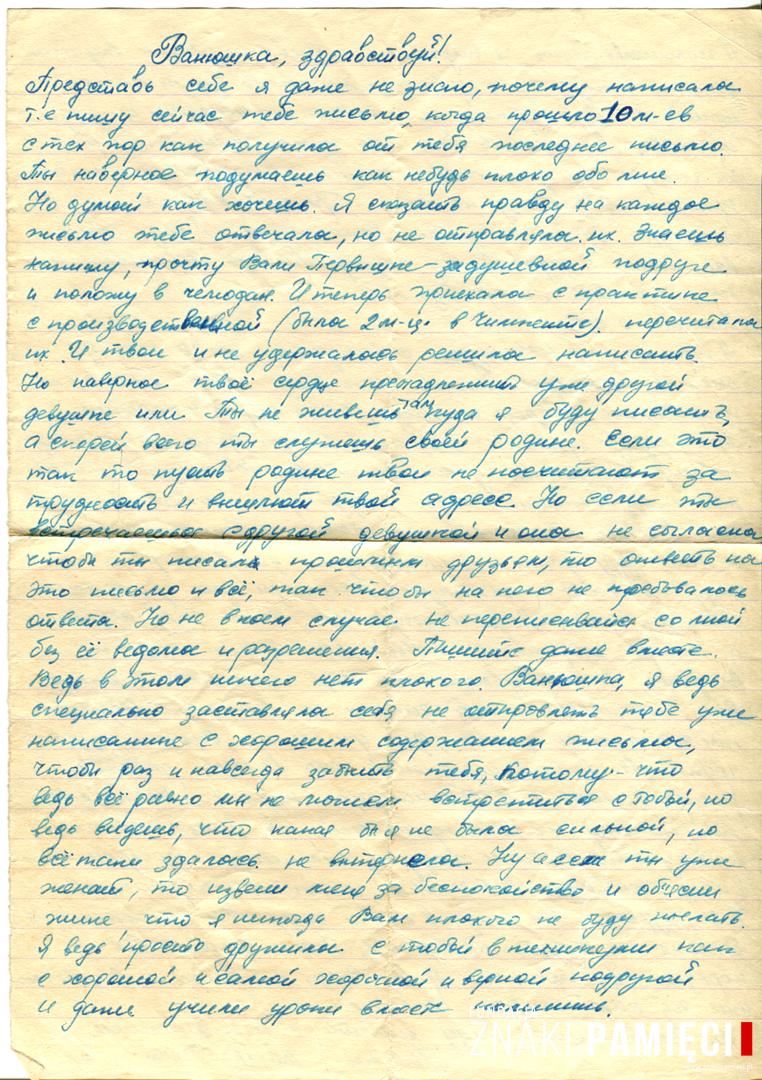 Ванюшка, здравствуй!
Представь себе я даже не знаю, почему написала
т.е пишу сейчас тебе письмо, когда прошло 10 м-ев
с тех пор как получила от тебя последнее письмо.
Ты наверное подумаешь как небудь плохо обо мне.
Но думай как хочешь. Я сказать правду на каждое
письмо тебе отвечала, но не отправляла их. Знаешь
напишу, прочту Вали Первышне - задушевной подруге
и положу в чемодан. И теперь приехала с практике
с производственной (была 2 м-ца в Чимкенте). перечитала
их. И твои и не удержалась решила написать.
Но наверное твоё сердце пренадлежит уже другой
девушке или ты не живёшь там куда я буду писать,
а скорей всего ты служишь своей родине. Если это
так то пусть родине твои не посчитают за
трудность и вышлют твой адресс. Но если ты
встречаешься с другой девушкой и она не сыгласна
чтобы ты писала прошлым друзьям, то ответь на
это письмо и всё, так чтобы на него не требывалось
ответа. Но не в коем случае не переписывайся со мной
без её ведома и разрешения. Пишите даже вместе.
Ведь в этом ничего нет плохого. Ванюшка, я ведь
специально заставляла себя не отправлять тебе уже
написанные с хорошим содержанием письма,
чтобы раз и навсегда забыть тебя, потому-что
ведь всё равно мы не можем встретиться с тобой, но
ведь видешь, что какая бы я не была сильной, но
всё таки здалась. не вытерпела. Ну а если ты уже
женат, то извени меня за беспокойство и объясни
жине что я никогда Вам плохого не буду желать.
Я ведь просто дружила с тобой в техникуми как
с хорошой и самой хорошой и верной подругой
и даже учили уроки вместе
FUNDACJA
ZNAKI PAMIĘCI